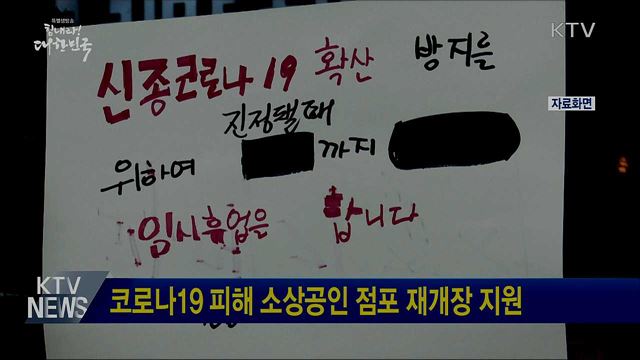 특별생방송
힘내라!
대한민국
KTV
자료화면
신종코로나19 확산 방지를
진정될때
위하여 까지
임시휴업은 합니다
KTV NEWS
코로나19 피해 소상공인 점포 재개장 지원